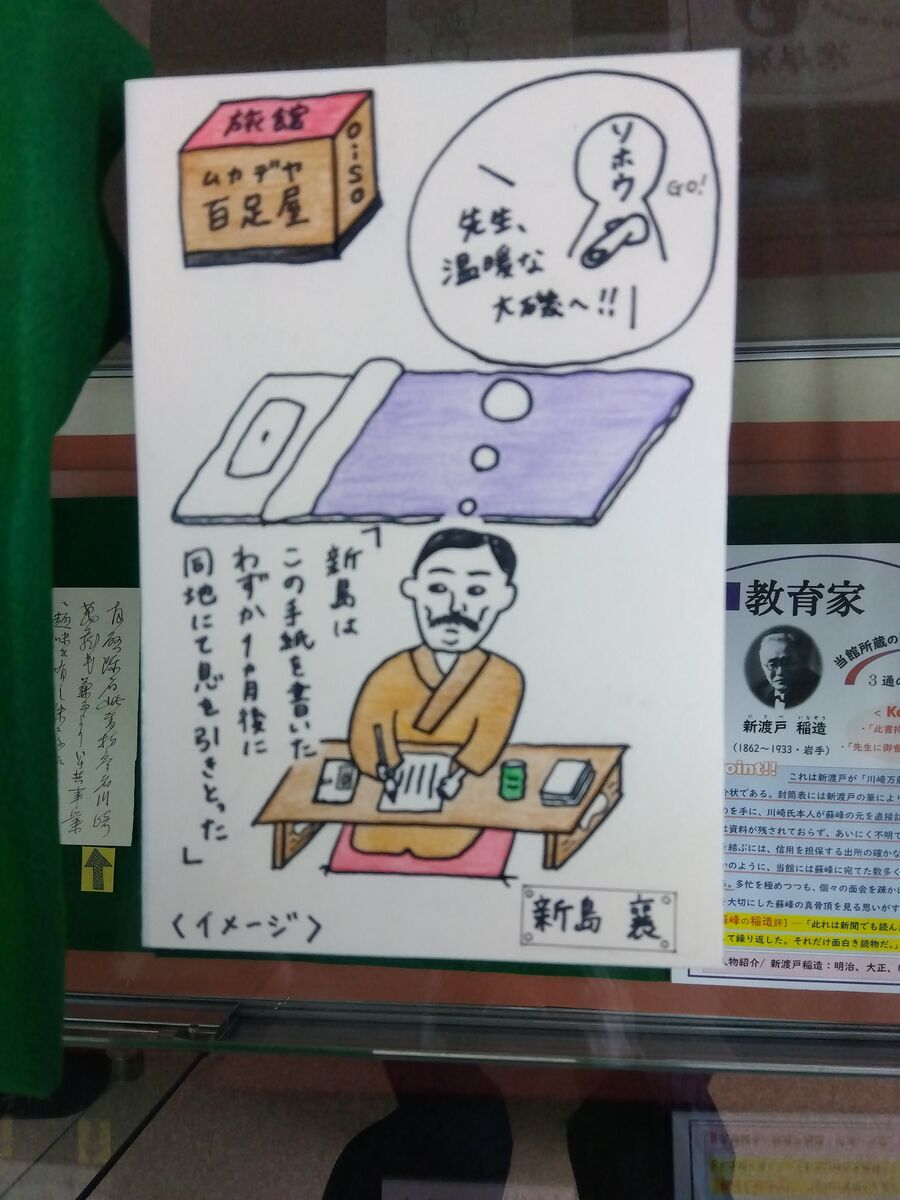 旅館
ムカデヤ
百足屋
OiSO
ソホウ
GO!
先生、
温暖な
大磯へ!!
「新島は
この手紙を書いた
わずか1ヵ月後に
同地にて息を引きとった」
〈イメージ〉
新島 襄
教育家
当館所蔵の
3通の
新渡戸 稲造
にとべ いなぞう
(1862〜1933・岩手)
oint!!
これは新渡戸が「川崎万
介状である。封筒表には新渡戸の筆により
を手に、川崎氏本人が蘇峰の元を直接
は資料が残されておらず、あいにく不明で
を結ぶには、信用を担保する出所の確かな
かのように、当館には蘇峰に宛てた数多く
る。多忙を極めつつも、個々の面会を疎か
を大切にした蘇峰の真骨頂を見る思いがす
蘇峰の稲造評】…「此れは新聞でも読ん
て繰り返した。それだけ面白き読物だ。」
人物紹介/ 新渡戸稲造：明治、大正、